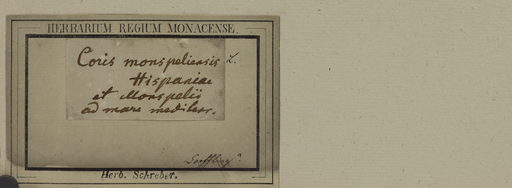 HERBARIUM REGIUM MONACENSE.
Coris monspeliensis L.
Hispaniae
et Monspelii
ad mare mediterr.
Herb. Schreber.